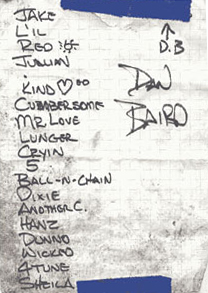 JAKE
L'IL
RED
JULIAN
KIND
CUMBERSOME
MR. LOVE
LUNGER
CRYIN
5
BALL-N-CHAIN
DIXIE
ANOTHER C.
HANZ
DUNNO
WICKED
4TUNE
SHEILA
D.B
DAN
BAIRD